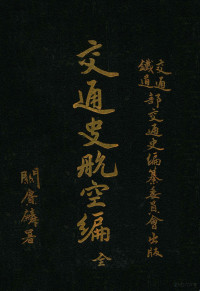 交通
鐵道 部交通史編纂委員會出版
交通史航空編 全
關賡麟署